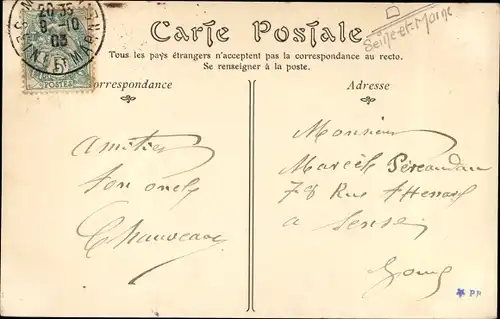 20 35
9 - 10
03
POSTES
Carte Postale
D
Seine-et-Marne
Tous les pays étrangers n'acceptent pas la correspondance au recto.
Se renseigner à la poste.
Correspondance
Adresse
Amitiés
ton oncle
Chauveau
Monsieur
Marcel
78 Rue Thenard
a Sens
Yonne
PP